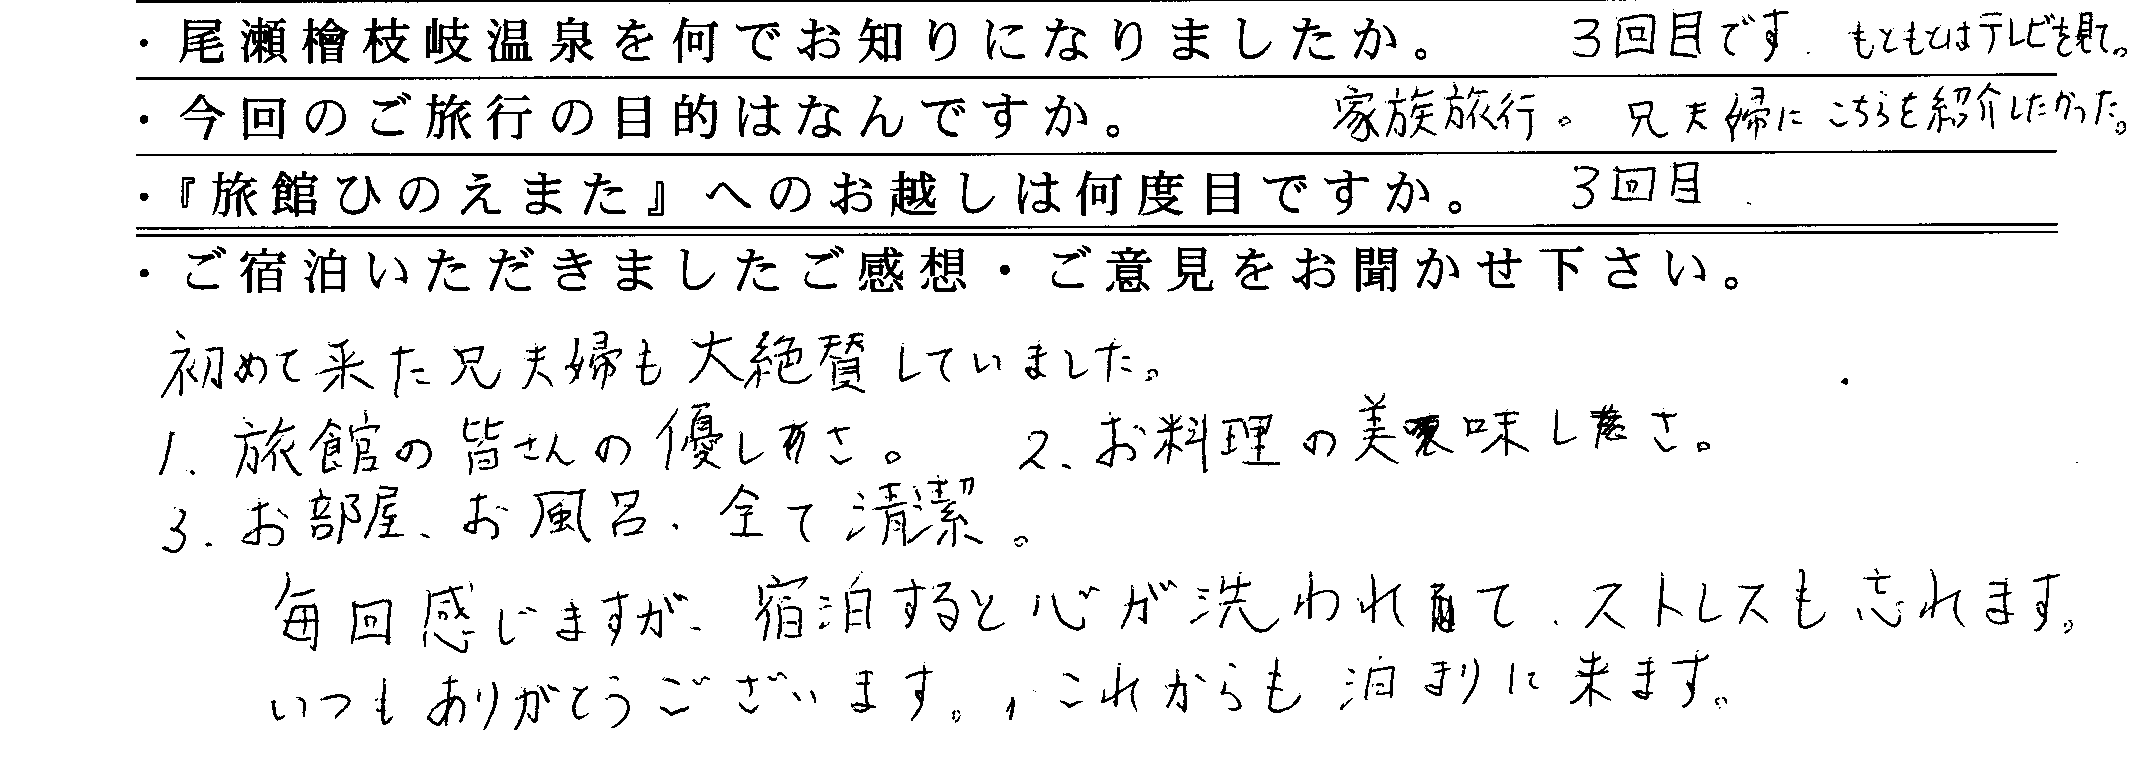 ・尾瀬檜枝岐温泉を何でお知りになりましたか。 3回目です. もともとはテレビを見て。
・今回のご旅行の目的はなんですか。 家族旅行。 兄夫婦にこちらを紹介したかった。
・『旅館ひのえまた』へのお越しは何度目ですか。 3回目.
・ご宿泊いただきましたご感想・ご意見をお聞かせ下さい。
初めて来た兄夫婦も大絶賛していました。
1. 旅館の皆さんの優しさ。 2. お料理の美味しさ。
3. お部屋、お風呂、全て清潔。
毎回感じますが、宿泊すると心が洗われて、ストレスも忘れます。
いつもありがとうございます。, これからも泊まりに来ます。